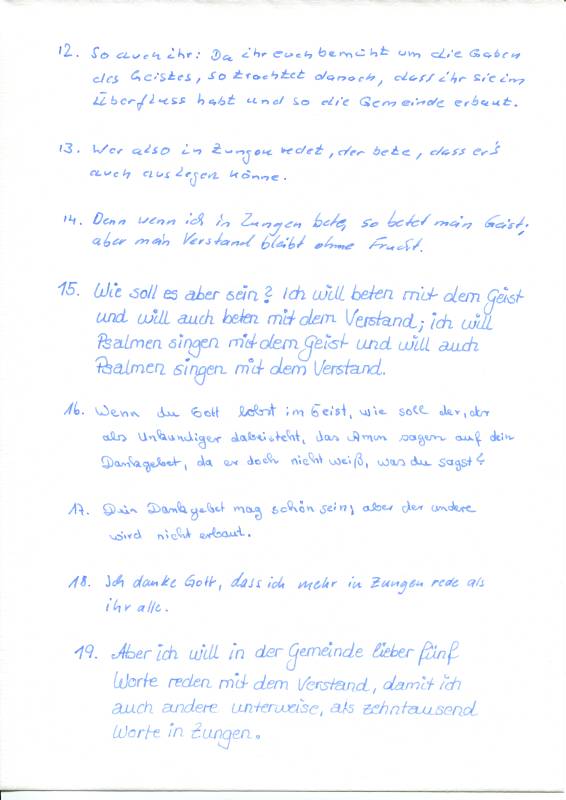 12. So auch ihr: Da ihr euch bemüht um die Gaben
des Geistes, so trachtet danach, dass ihr sie im
Überfluss habt und so die Gemeinde erbaut.
13. Wer also in Zungen redet, der bete, dass er's
auch auslegen könne.
14. Denn wenn ich in Zungen bete, so betet mein Geist;
aber mein Verstand bleibt ohne Frucht.
15. Wie soll es aber sein? Ich will beten mit dem Geist
und will auch beten mit dem Verstand; ich will
Psalmen singen mit dem Geist und will auch
Psalmen singen mit dem Verstand.
16. Wenn du Gott lobst im Geist, wie soll der, der
als Unkundiger dabeisteht, das Amen sagen auf dein
Dankgebet, da er doch nicht weiß, was du sagst?
17. Dein Dankgebet mag schön sein, aber der andere
wird nicht erbaut.
18. Ich danke Gott, dass ich mehr in Zungen rede als
ihr alle.
19. Aber ich will in der Gemeinde lieber fünf
Worte reden mit dem Verstand, damit ich
auch andere unterweise, als zehntausend
Worte in Zungen.